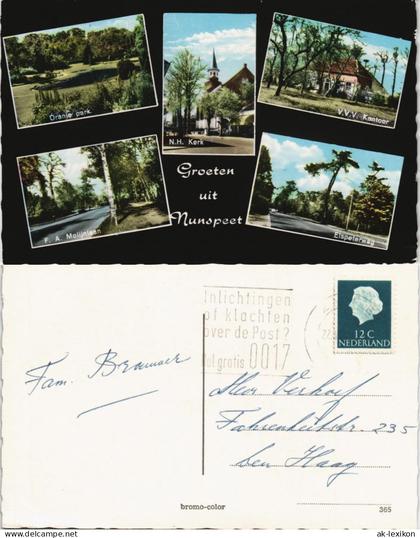 Oranje park
N.H. Kerk
V.V.V. Kantoor
F. A. Molijnlaan
Groeten
uit
Nunspeet
Elspeterweg
Inlichtingen
of klachten
over de Post?
Bel gratis 0017
12 C
NEDERLAND
Fam. Brouwer
Heer Verhoef
Fahrenheitstr. 235
den Haag
bromo-color
365
www.delcampe.net
ak-lexikon